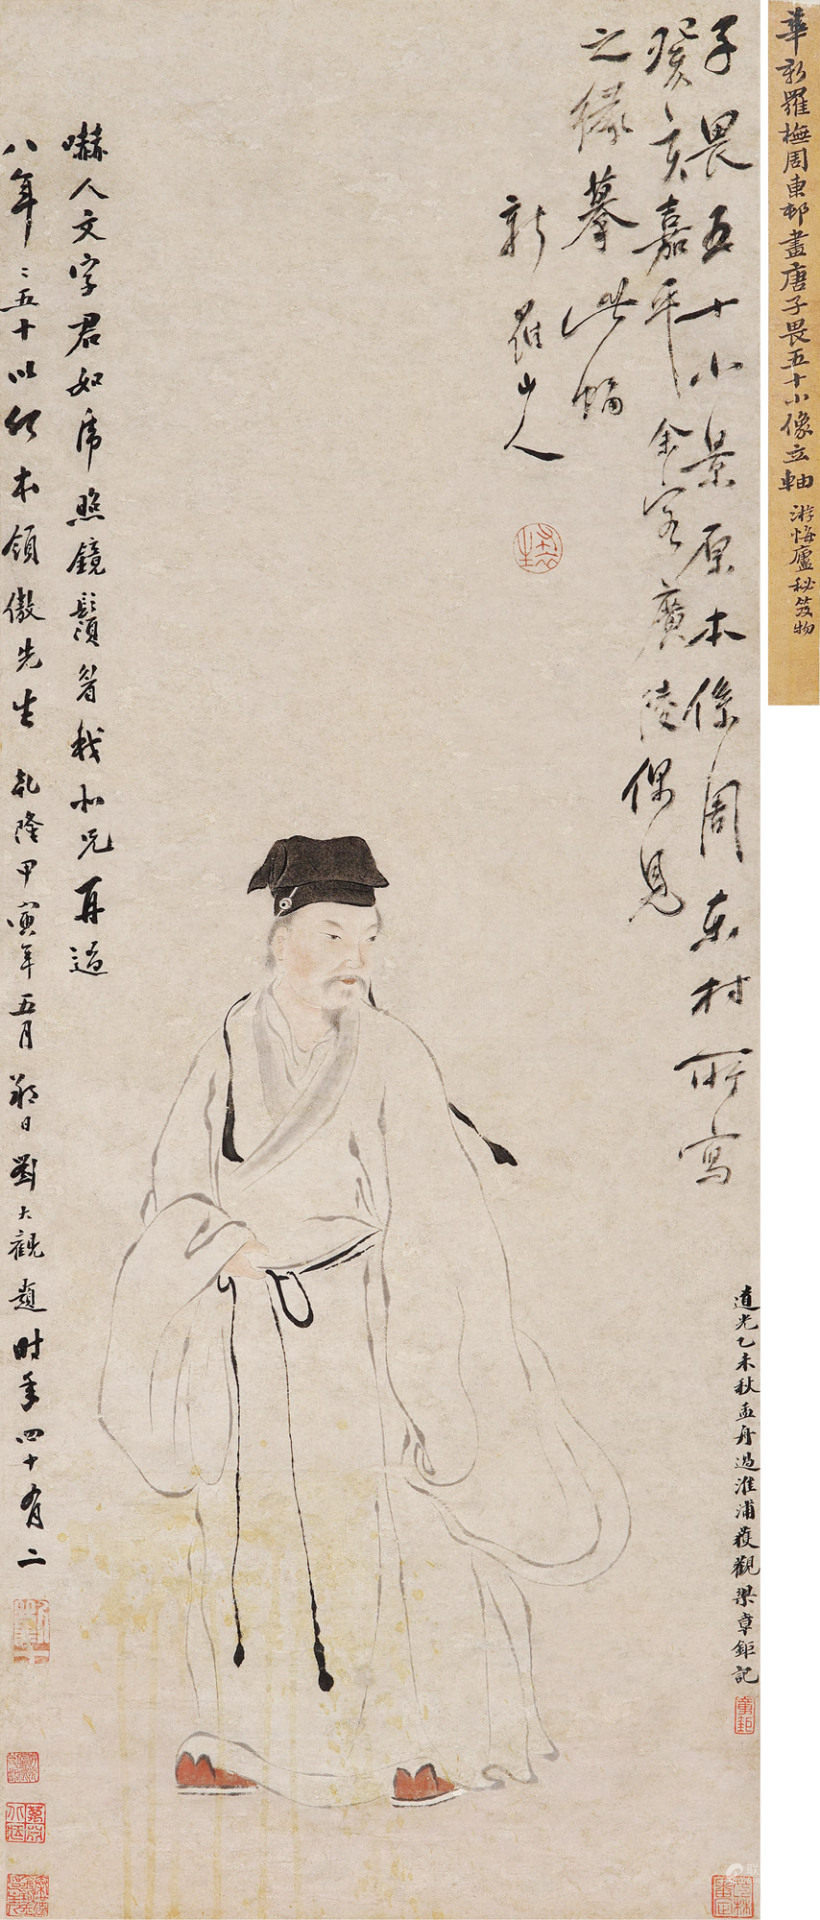 華新羅橅周東邨畫唐子畏五十小像立軸 游悔廬秘笈物
子畏五十小景原本係周東村所寫
癸亥嘉平余客廣陵偶見
之緣摹此幅
新羅山人
嚇人文字君如虎照鏡鬚眉我似兄再過
八年年五十以何本領傲先生 乾隆甲寅年五月
日劉大觀題時年四十有二
道光乙未秋孟舟過淮浦獲觀梁章鉅記